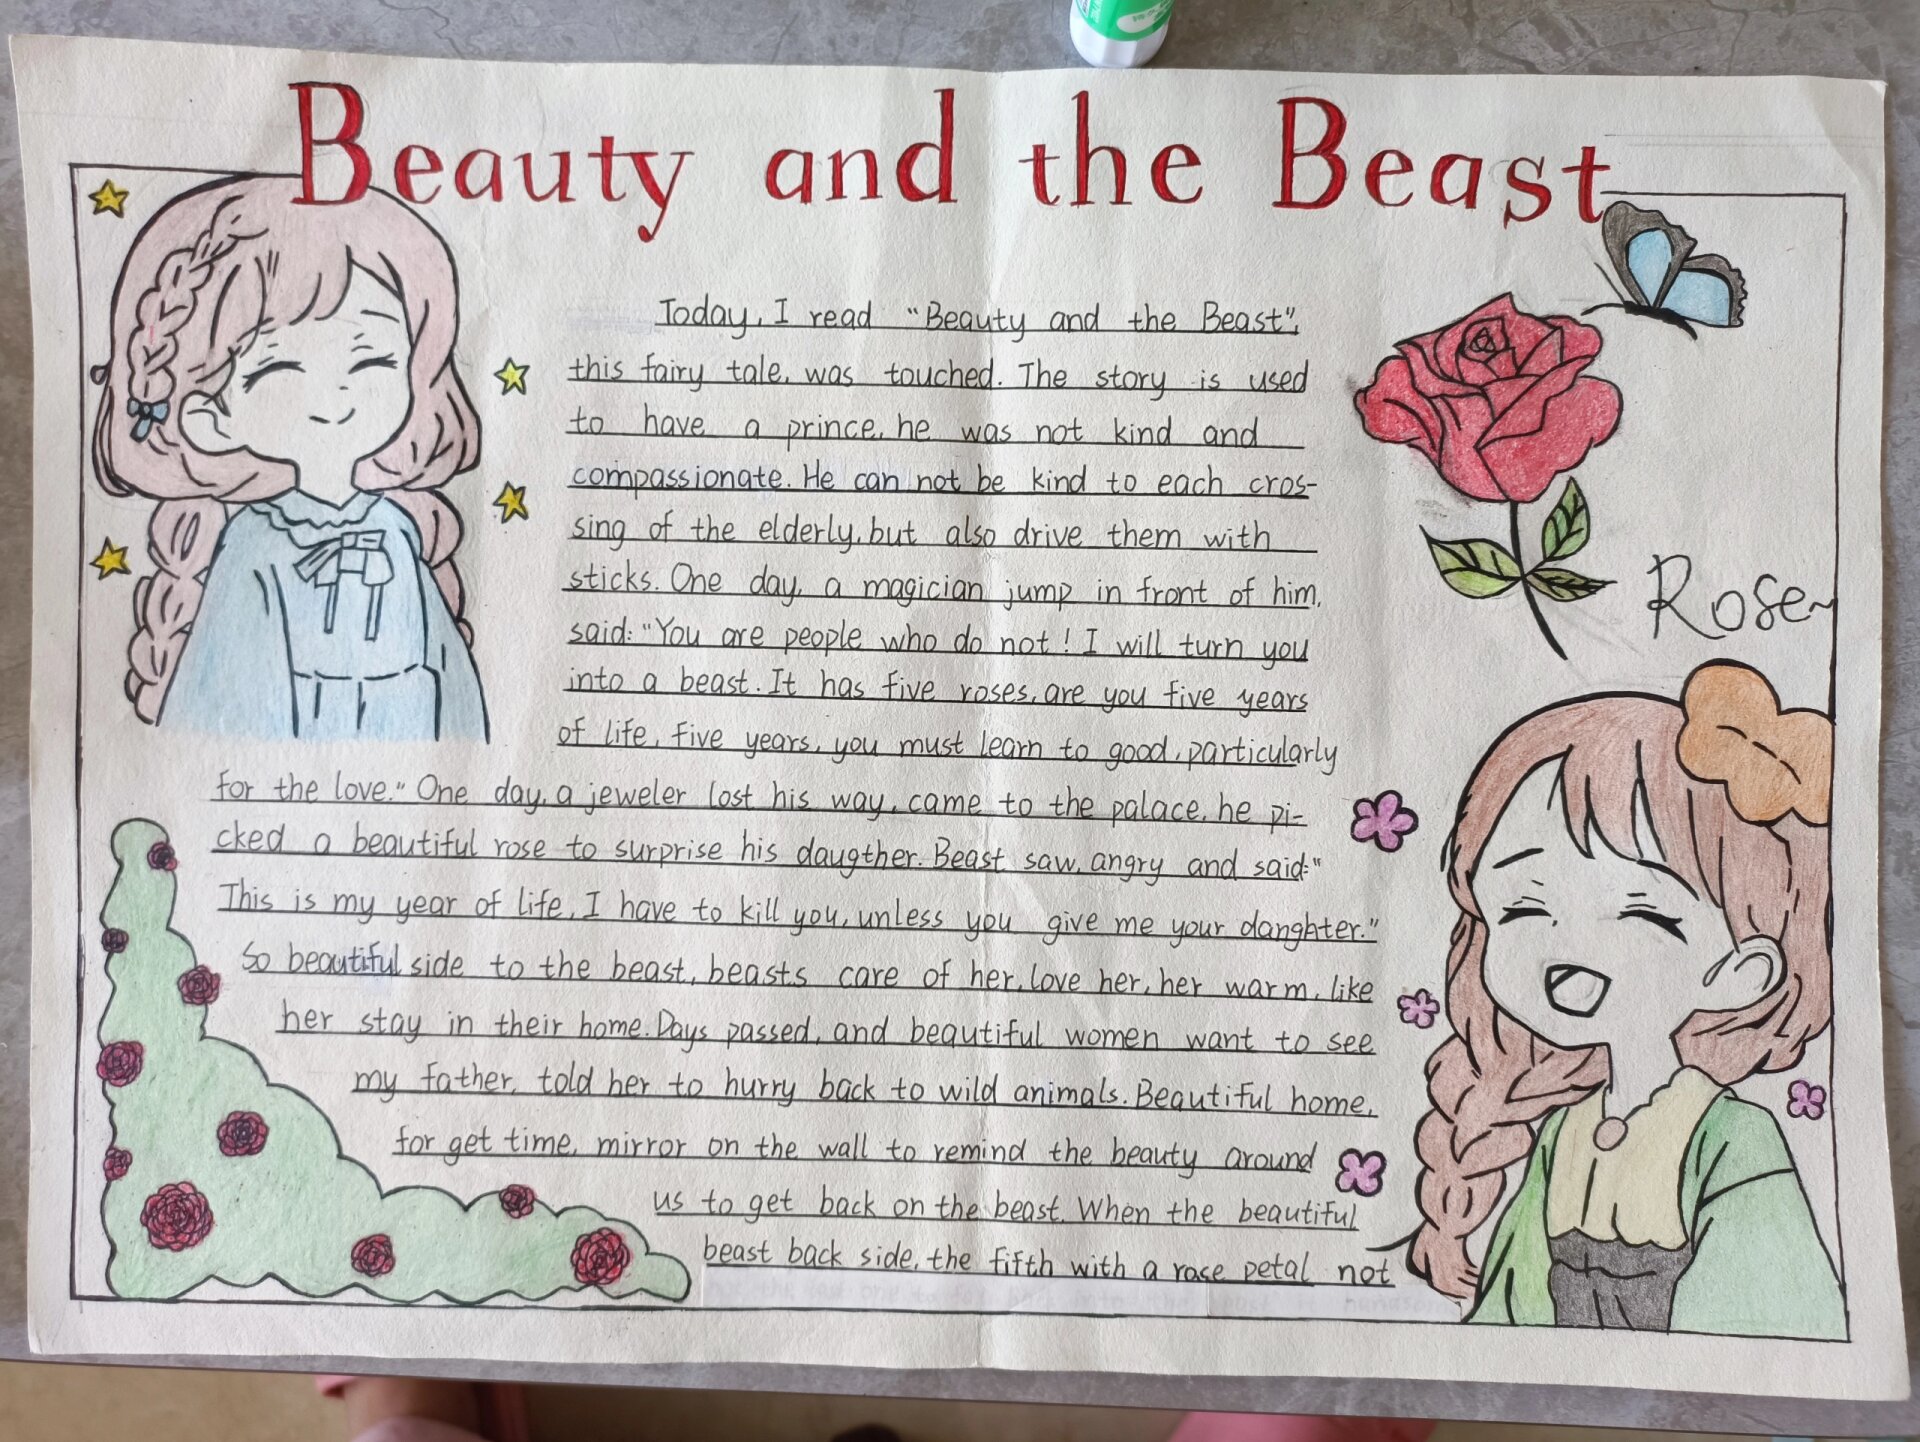 Beauty and the Beast
Today, I read "Beauty and the Beast",
this fairy tale, was touched. The story is used
to have a prince, he was not kind and
compassionate. He can not be kind to each cros-
sing of the elderly, but also drive them with
sticks. One day, a magician jump in front of him,
said: "You are people who do not! I will turn you
into a beast. It has five roses, are you five years
of life, five years, you must learn to good, particularly
for the love." One day, a jeweler lost his way, came to the palace, he pi-
cked a beautiful rose to surprise his daugther. Beast saw, angry and said:"
This is my year of life, I have to kill you, unless you give me your danghter."
So beautiful side to the beast, beasts care of her, love her, her warm, like
her stay in their home. Days passed, and beautiful women want to see
my father, told her to hurry back to wild animals. Beautiful home,
for get time, mirror on the wall to remind the beauty around
us to get back on the beast. When the beautiful
beast back side, the fifth with a rose petal not
Rose~